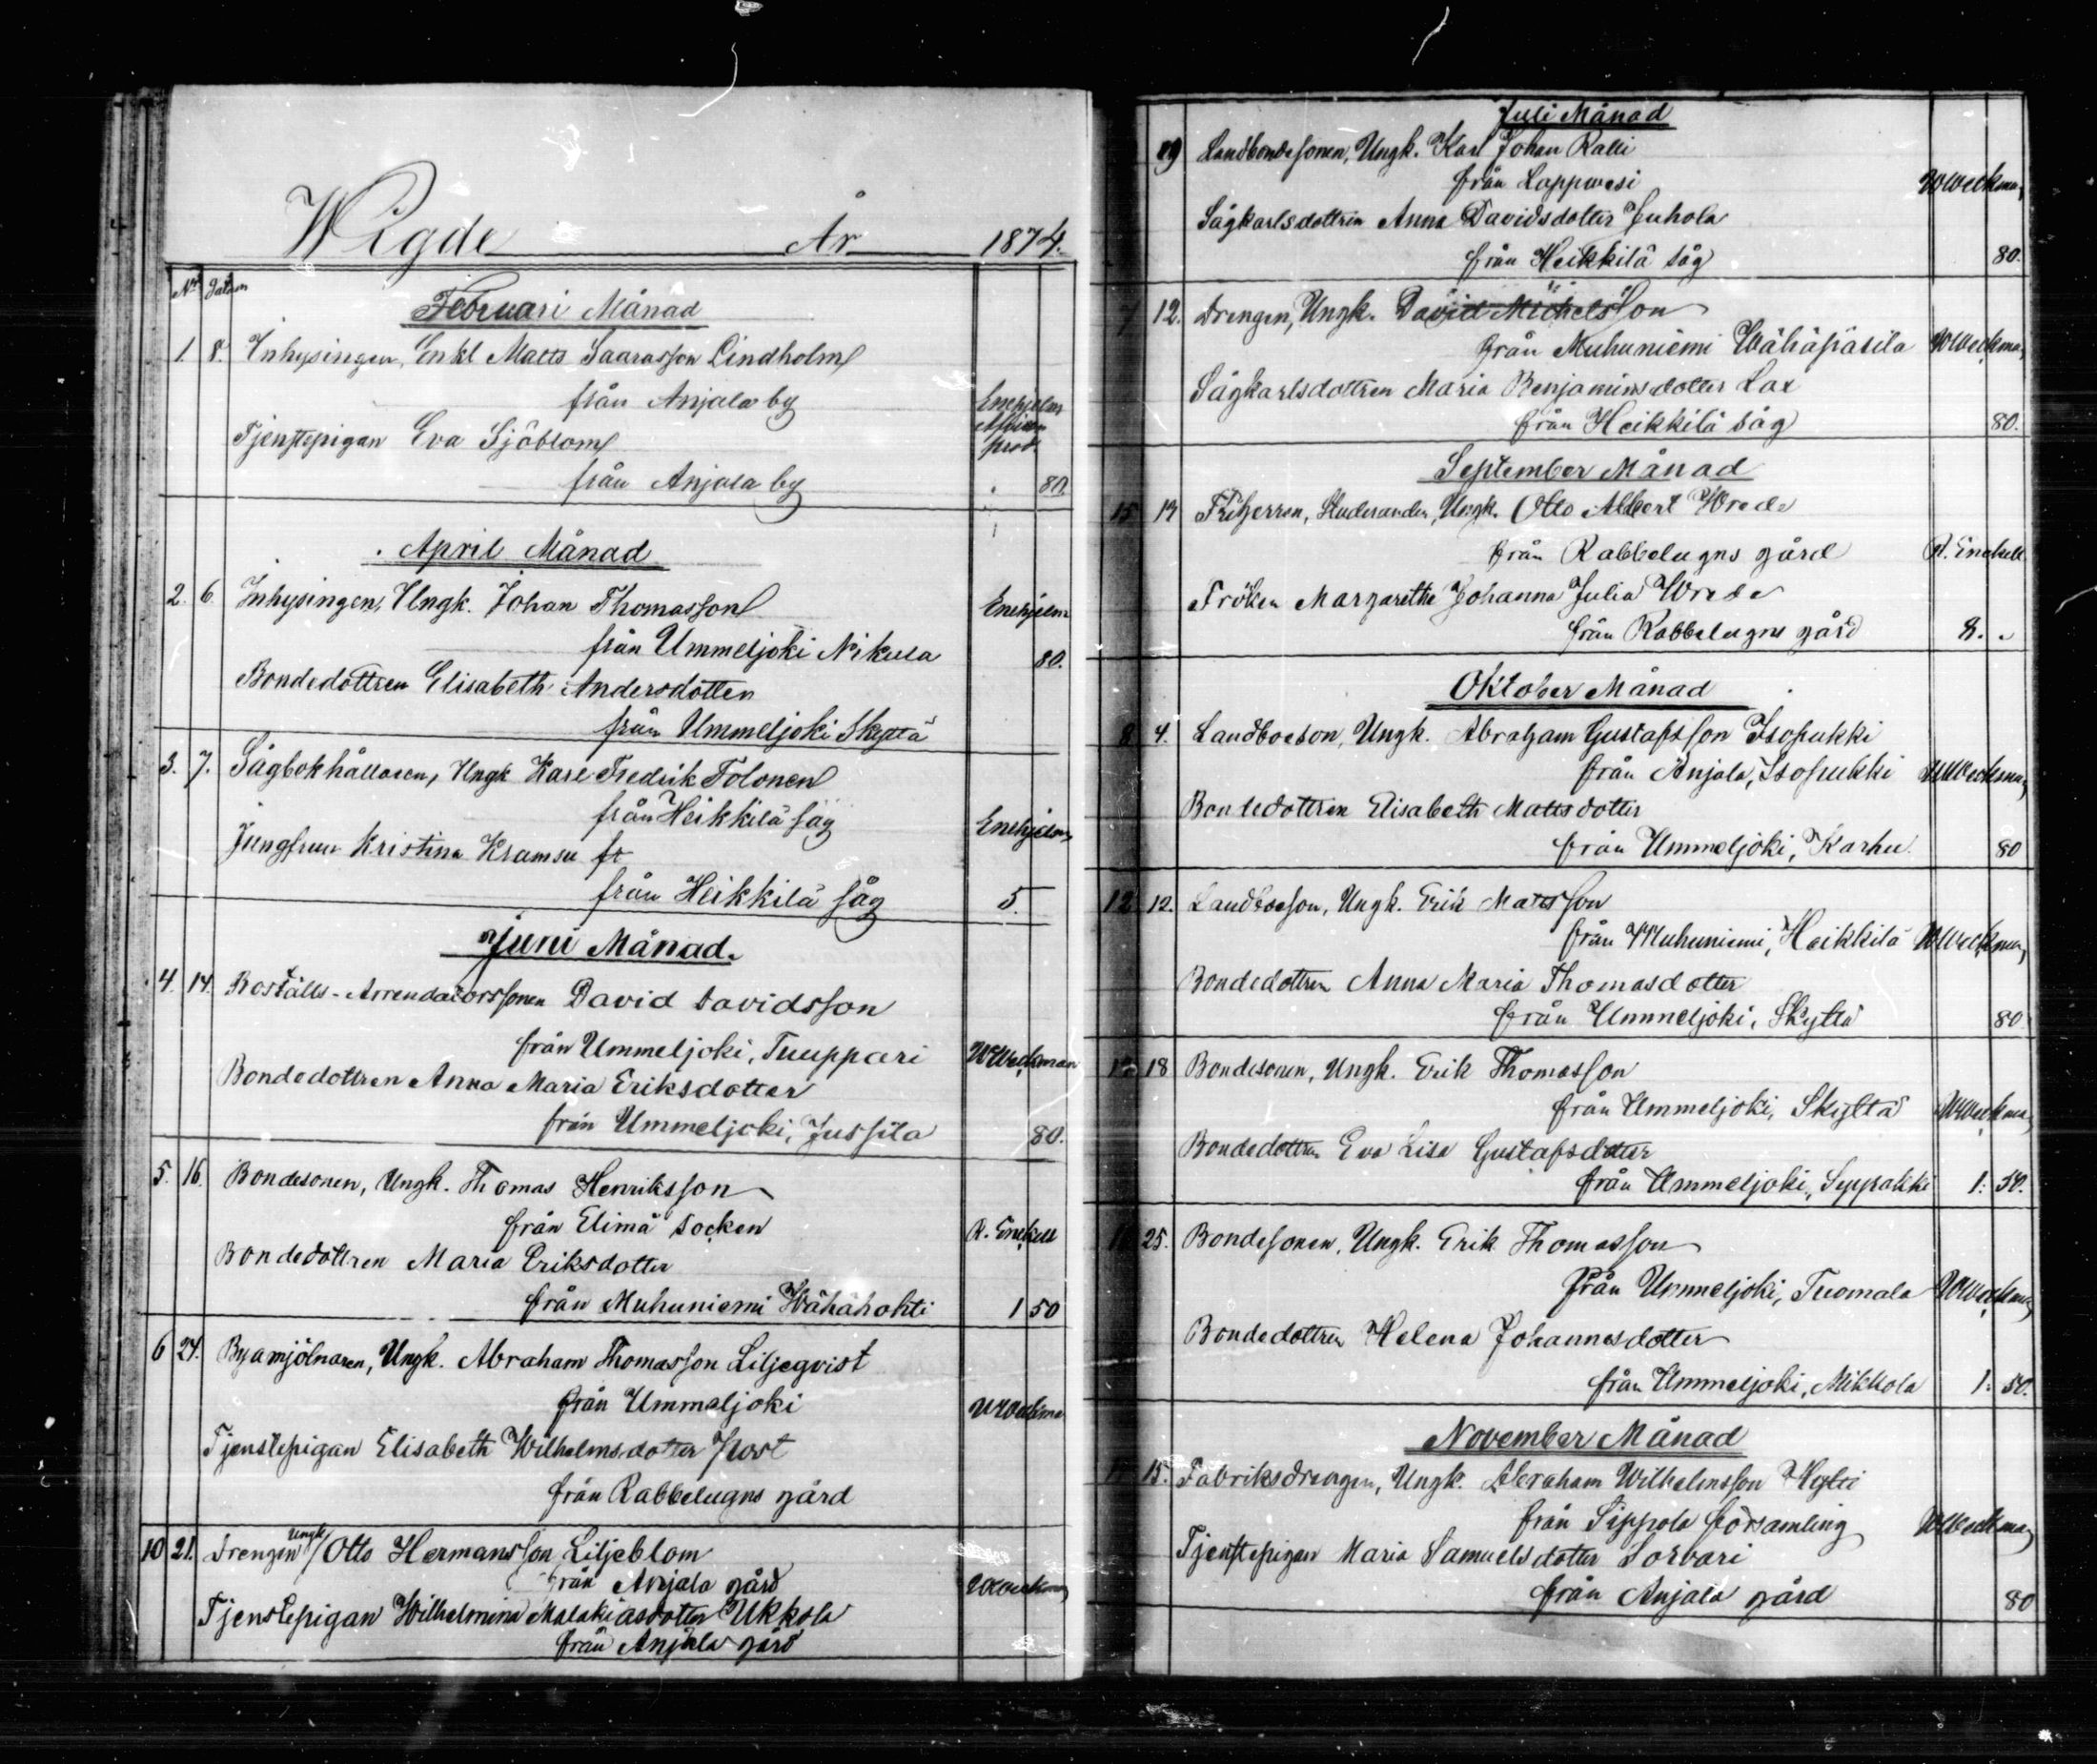 Wigde År 1874.
No Datum
Februari Månad
1. 8. Inhysingen, Enkl Matts Saarasson Lindholm
från Anjala by Enehjelm
Tjenstepigan Eva Sjöblom
från Anjala by 80.
April Månad
2. 6. Inhysingen, Ungk. Johan Thomasson Enehjelm
från Ummeljoki Nikula 80.
Bondedottren Elisabeth Andersdotter
från Ummeljoki Skyttä
3. 7. Sågbokhållaren, Ungk Karl Fredrik Tolonen
från Heikkilä såg Enehjelm
Jungfrun Kristina Kramsu fr
från Heikkilä såg 5.
Juni Månad.
4. 14. Boställs-Arrendatorssonen David Davidsson
från Ummeljoki, Tuuppari W Weckman
Bondedottren Anna Maria Eriksdotter
från Ummeljoki, Jussila 80.
5. 16. Bondesonen, Ungk. Thomas Henriksson
från Elimä socken R. Enckell
Bondedottren Maria Eriksdotter
från Muhuniemi Wähähohti 1 50
6 24. Byamjölnaren, Ungk. Abraham Thomasson Liljeqvist
från Ummeljoki W Weckma
Tjenstepigan Elisabeth Wilhelmsdotter Frost
från Rabbelugns gård
10 21. Drengen Ungk/ Otto Hermansson Liljeblom
från Anjala gård W Weckman
Tjenstepigan Wilhelmina Malakiasdotter Ukkola
från Anjala gård
Juli Månad
19 Landbondesonen, Ungk. Karl Johan Ralli
från Lappwesi W Weckman
Sågkarlsdottren Anna Davidsdotter Juhola
från Heikkilä såg 80.
7 12. Drengen, Ungk. David Michelsson
från Muhuniemi Wähäpäsilä W Weckman
Sågkarlsdottren Maria Benjaminsdotter Lax
från Heikkilä såg 80.
September Månad
15 19 Friherren, Studeranden, Ungk. Otto Albert Wrede
från Rabbelugns gård R. Enckell
Fröken Margaretha Johanna Julia Wrede
från Rabbelugns gård 8. "
Oktober Månad
8 4. Landboeson, Ungk. Abraham Gustafsson Isopukki
från Anjala, Isopukki W Weckman
Bondedottren Elisabeth Mattsdotter
från Ummeljoki, Karhu 80
12 12. Landboeson, Ungk. Erik Mattsson
från Muhuniemi, Heikkilä W Weckman
Bondedottren Anna Maria Thomasdotter
från Ummeljoki, Skyttä 80
18 Bondesonen, Ungk. Erik Thomasson
från Ummeljoki, Skyttä W Weckman
Bondedottren Eva Lisa Gustafsdotter
från Ummeljoki, Seppakki 1. 50.
25. Bondesonen, Ungk. Erik Thomasson
från Ummeljoki, Tuomala W Weckman
Bondedottren Helena Johannesdotter
från Ummeljoki, Mikkola 1. 50.
November Månad
15. Fabriksdrengen, Ungk. Abraham Wilhelmsson Hytti
från Sippola församling W Weckman
Tjenstepigan Maria Samuelsdotter Sorvari
från Anjala gård 80